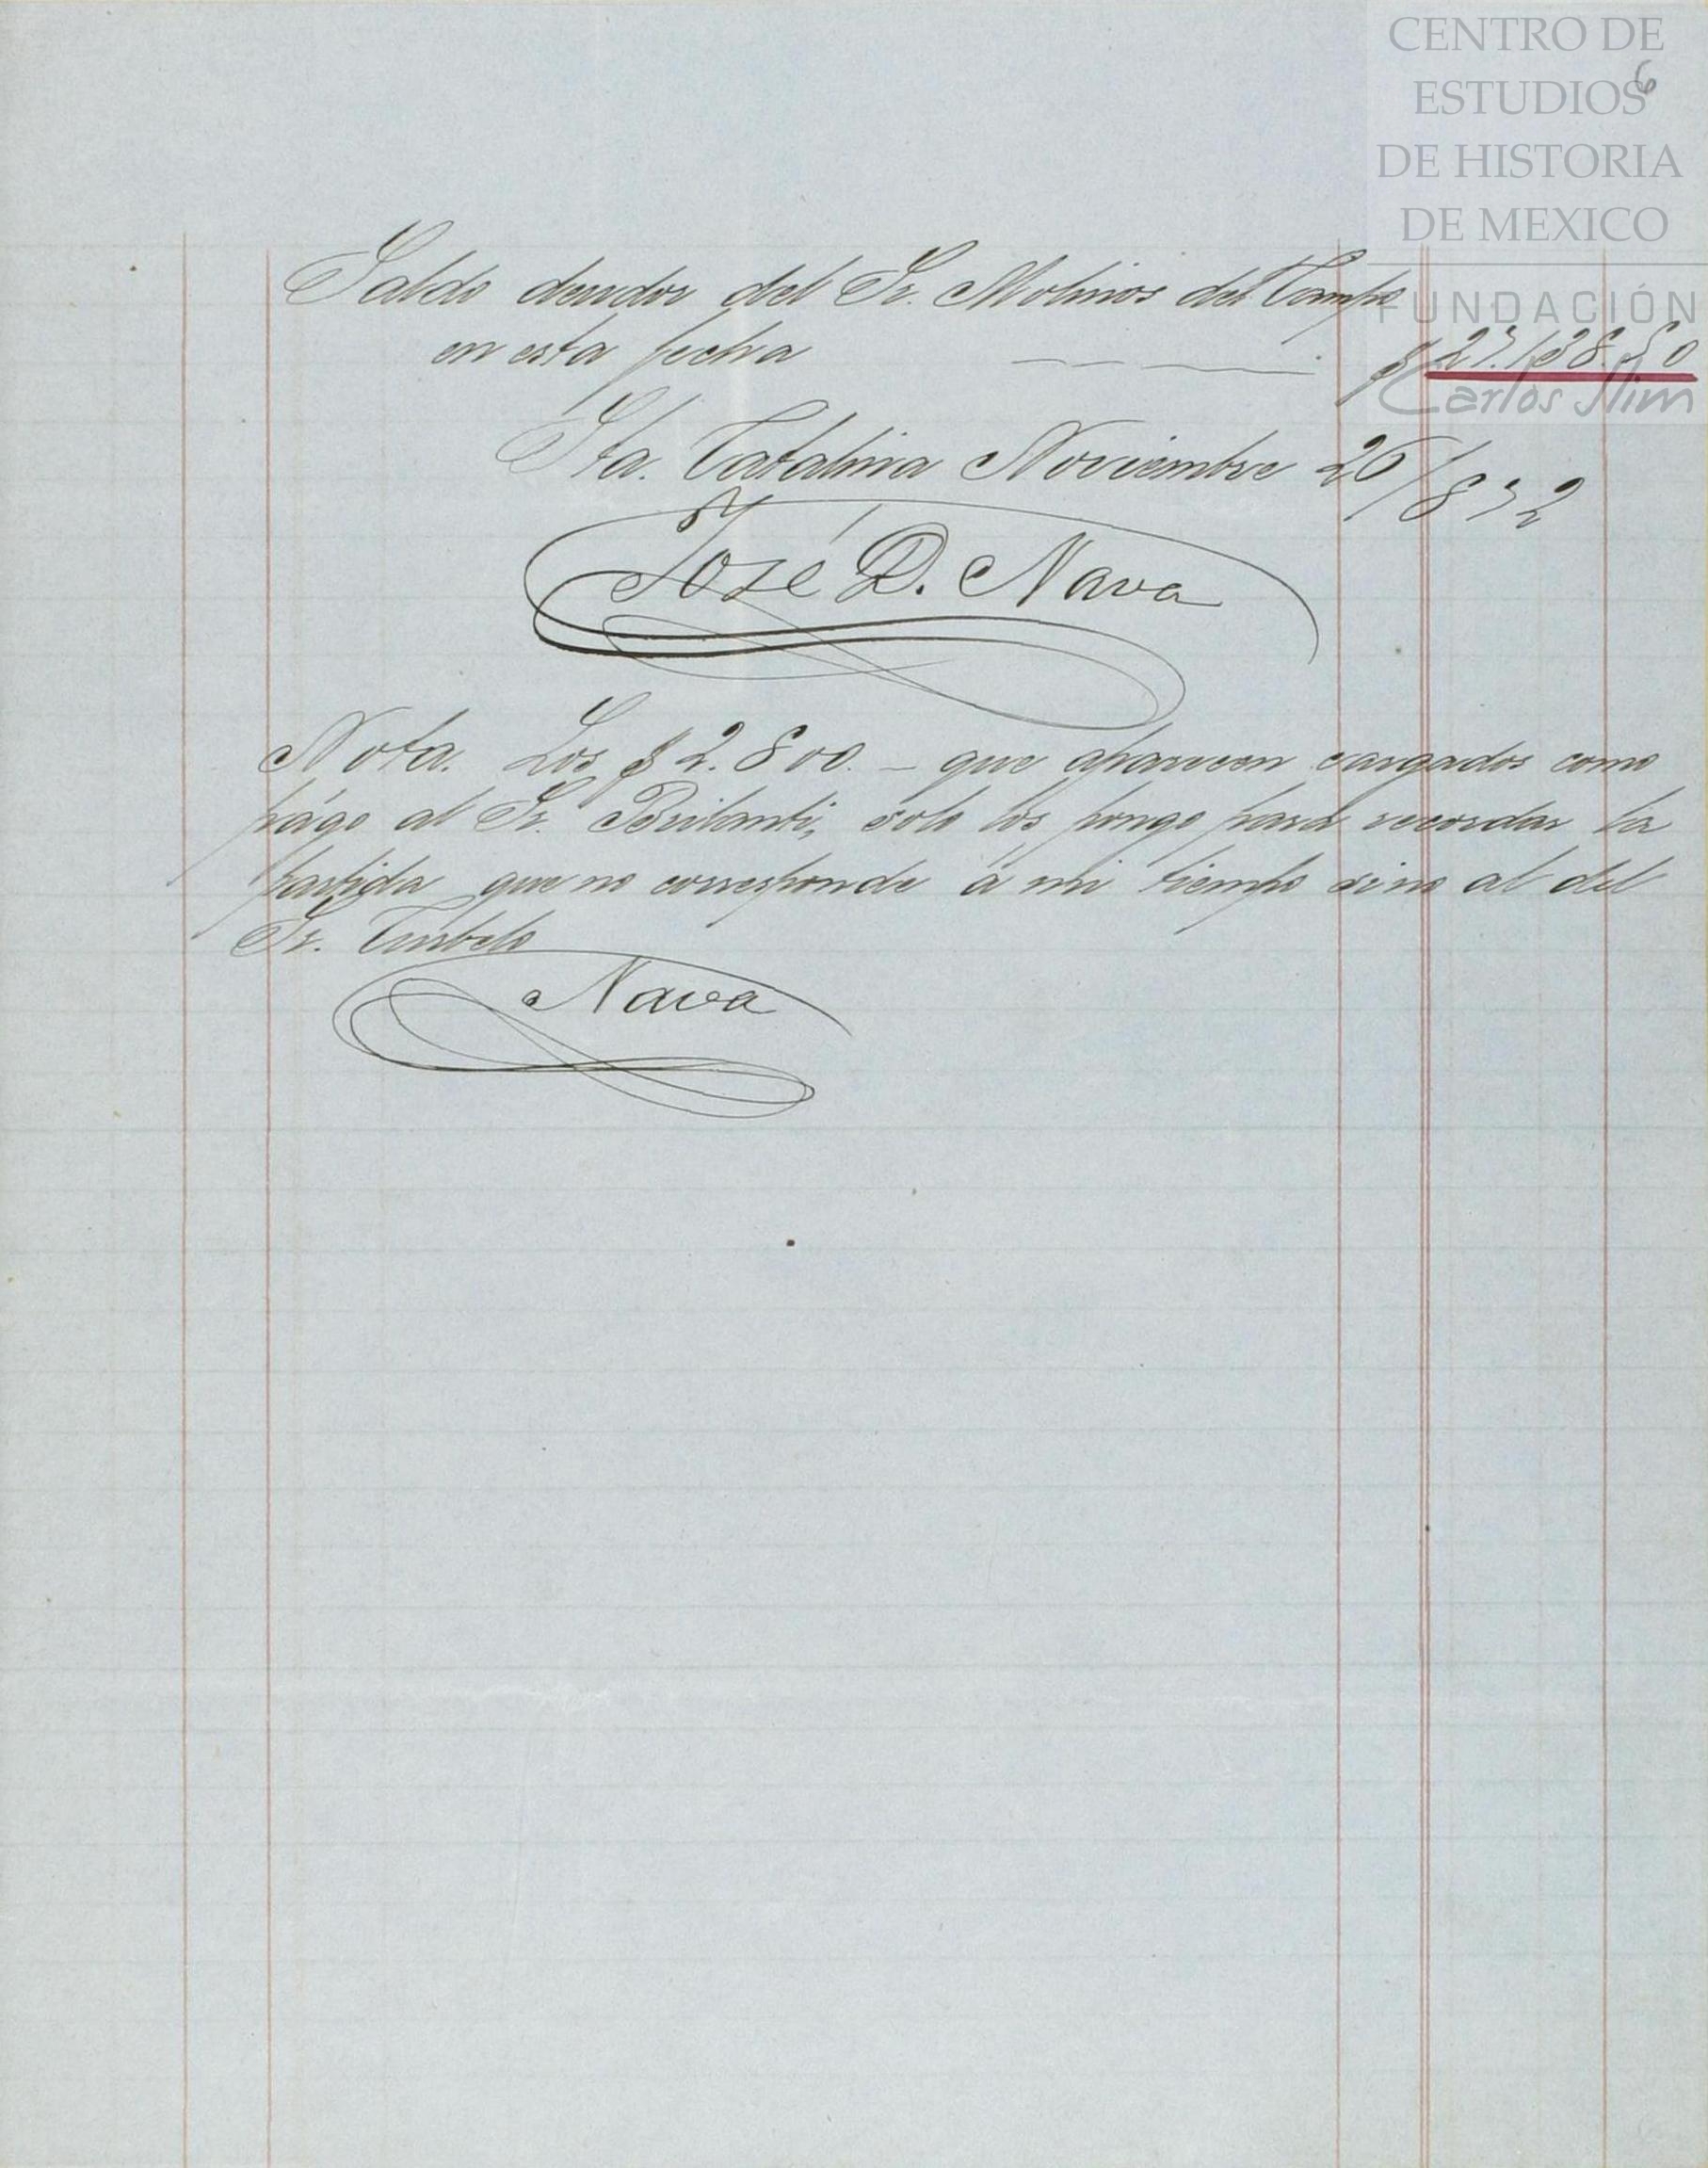 CENTRO DE
ESTUDIOS
6
DE HISTORIA
DE MEXICO
FUNDACIÓN
Carlos Slim
Saldo deudor del Sr. Molinos del Campo
en esta fecha $ 27.138.50
Sta. Catalina Noviembre 26/872
José D. Nava
Nota. Los $ 2.800. - que aparecen cargados como
págo al Sr. solo los pongo para recordar la
partida que no corresponde á mi tiempo sino al del
Sr.
Nava